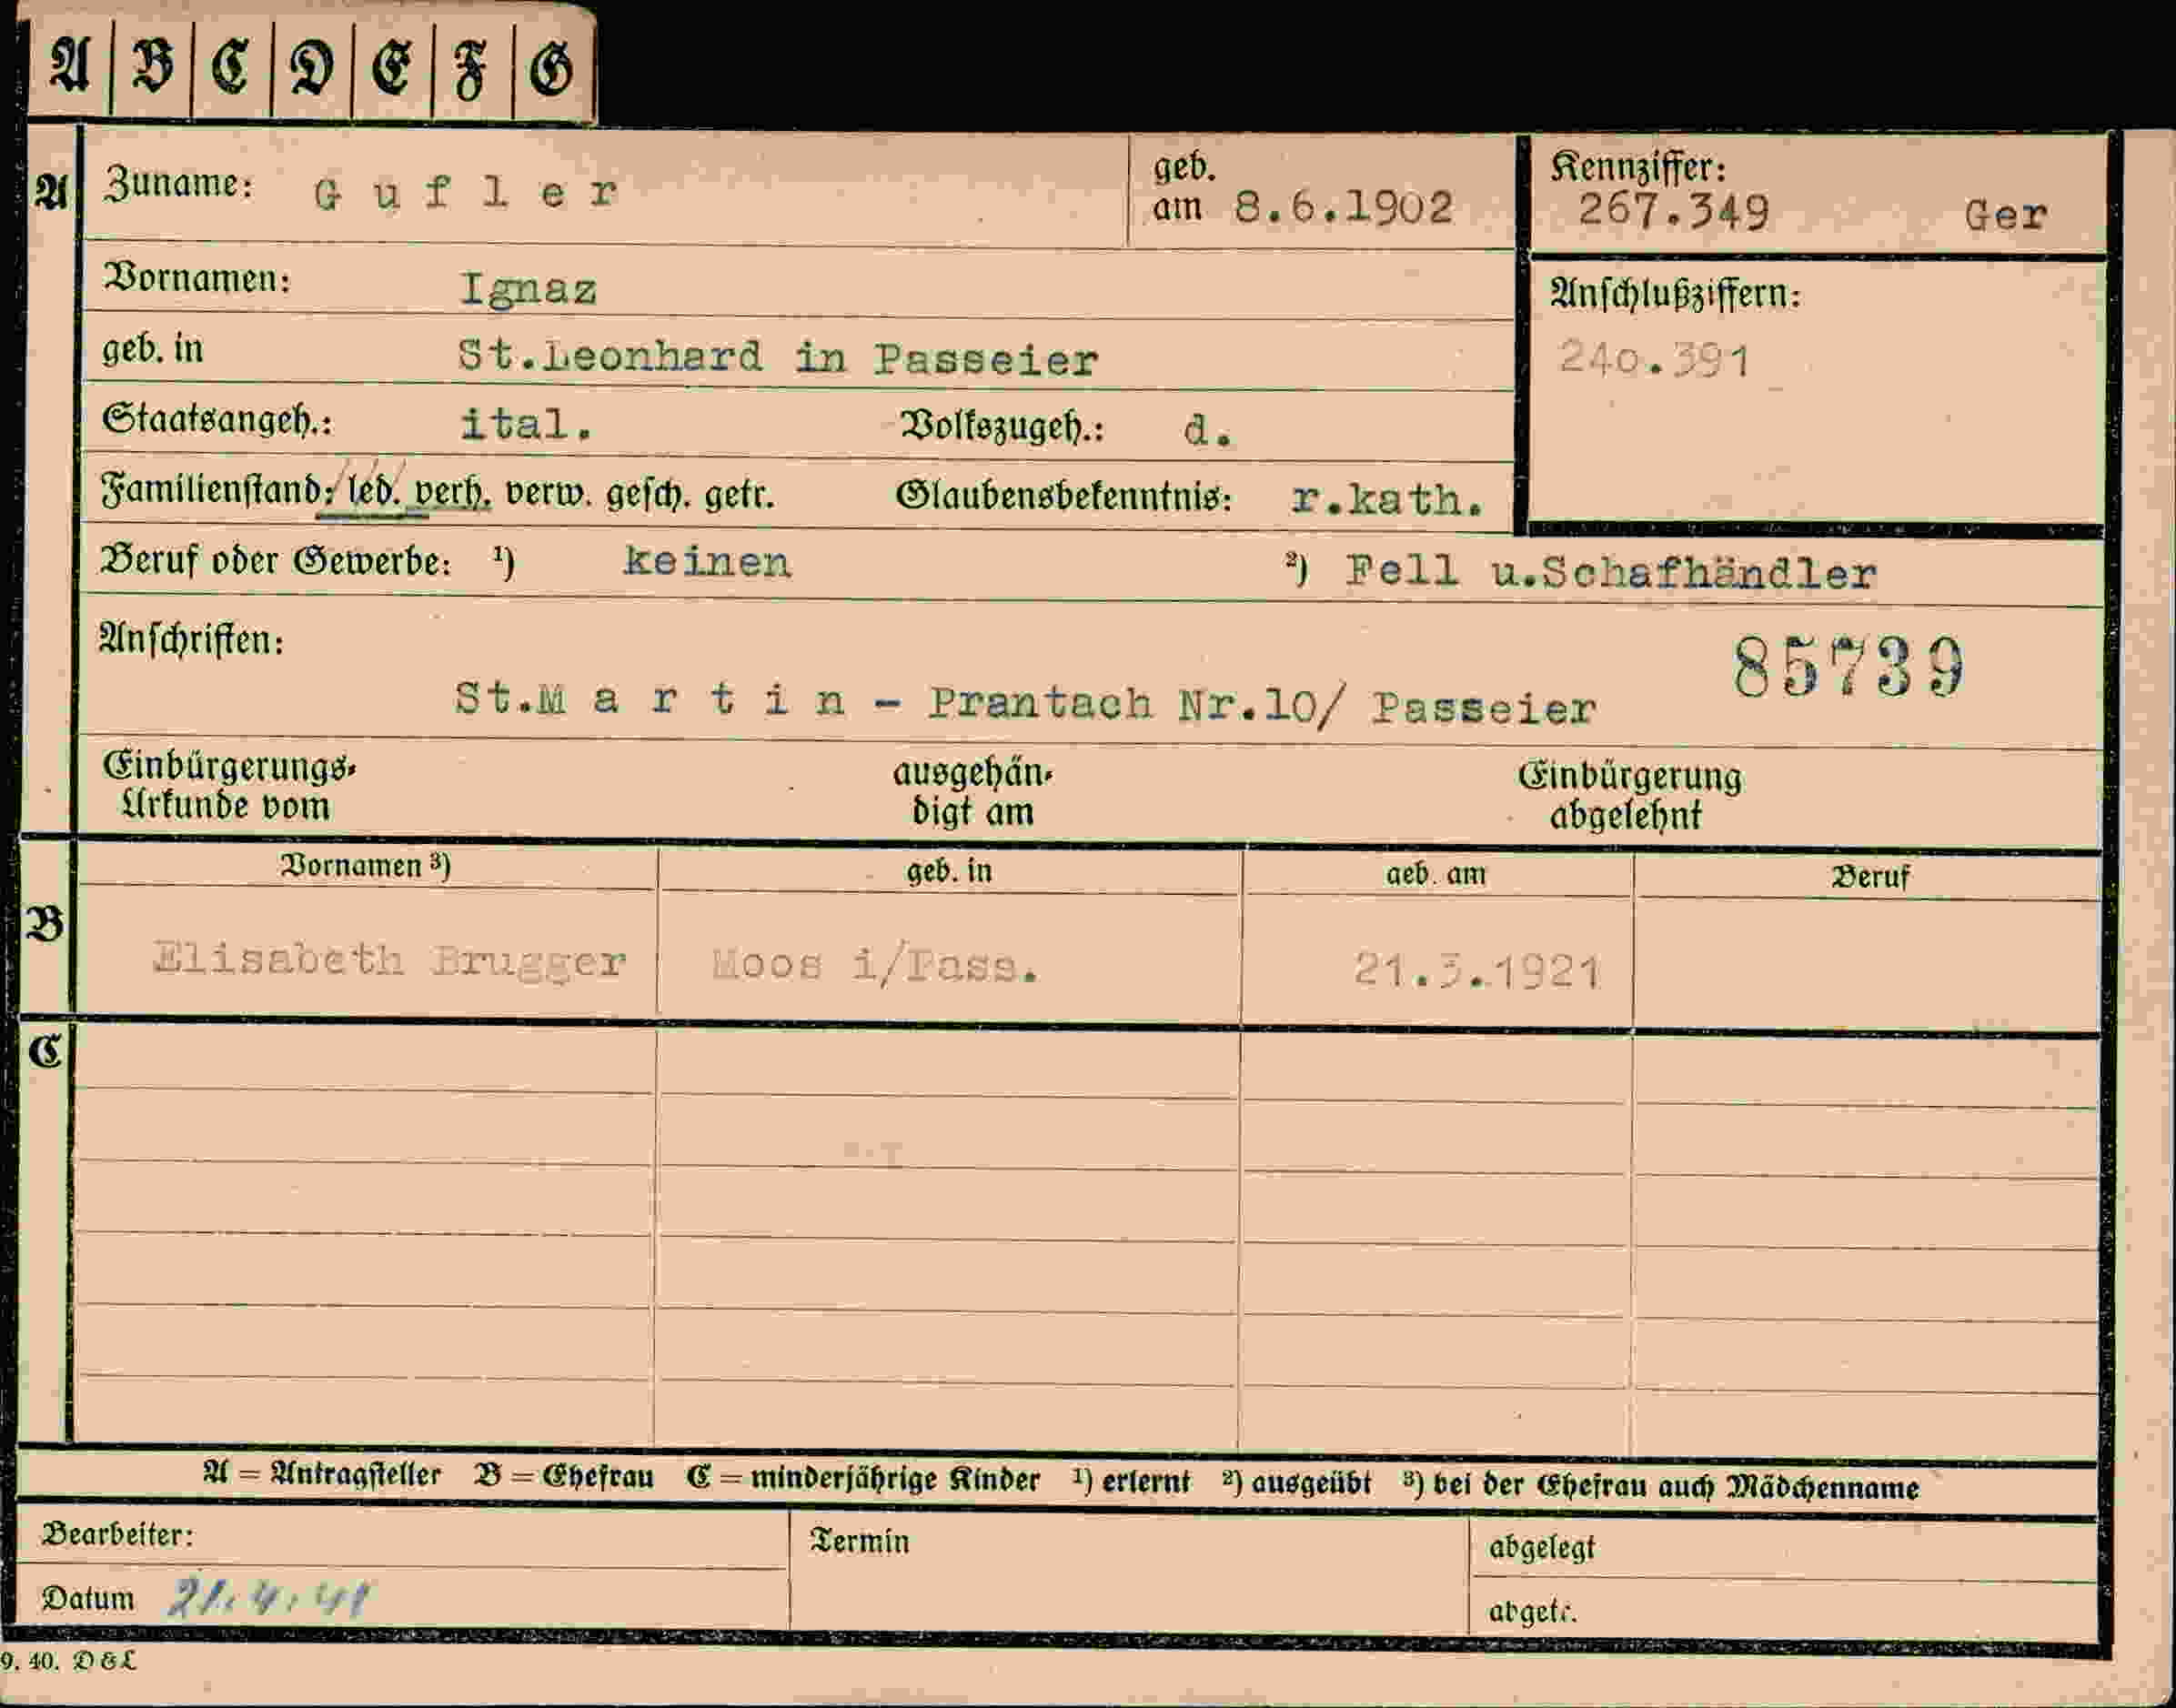 A B C D E F G
A Zuname: G u f l e r geb. am 8.6.1902 Kennziffer: 267.349 Ger
Vornamen: Ignaz Anschlußziffern:
geb. in St.Leonhard in Passeier 240.391
Staatsangeh.: ital. Volkszugeh.: d.
Familienstand: led. verh. verw. gesch. getr. Glaubensbekenntnis: r.kath.
Beruf oder Gewerbe: ¹) keinen ²) Fell u.Schafhändler
Anschriften: 85739
St.M a r t i n - Prantach Nr.10/ Passeier
Einbürgerungs- ausgehän- Einbürgerung
Urkunde vom digt am abgelehnt
Vornamen ³) geb. in geb. am Beruf
B Elisabeth Brugger Moos i/Pass. 21.3.1921
C
A = Antragsteller B = Ehefrau C = minderjährige Kinder ¹) erlernt ²) ausgeübt ³) bei der Ehefrau auch Mädchenname
Bearbeiter: Termin abgelegt
Datum 21.4.41 abgetr.
9. 40. D & L